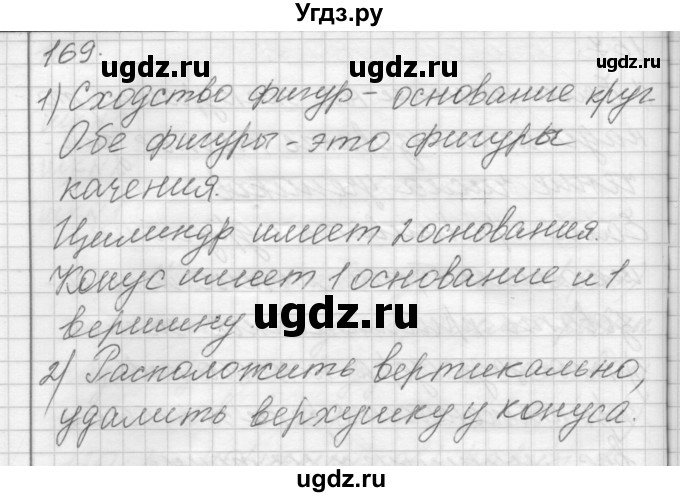 Угдз.ру
169.
ugdz.ru ugdz.ru
1) Сходство фигур - основание круг
Обе фигуры - это фигуры
ugdz.ru
качения.
Цилиндр имеет 2 основания.
Конус имеет 1 основание и 1
ugdz.ru ugdz.ru
вершину.
2) Расположить вертикально,
удалить верхушку у конуса.
ugdz.ru